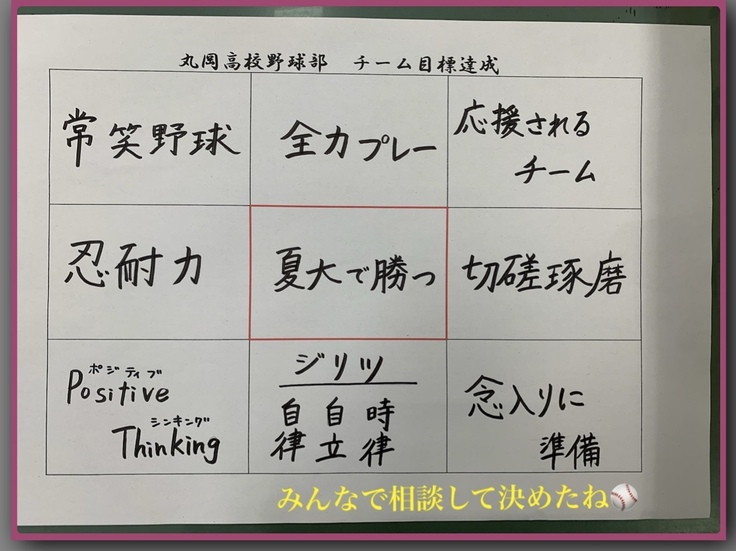 丸岡高校野球部　チーム目標達成
常笑野球
全力プレー
応援される
チーム
忍耐力
夏大で勝つ
切磋琢磨
ポジティブ
Positive
シンキング
Thinking
ジリツ
自律 自立 時律
念入りに
準備
みんなで相談して決めたね⚾